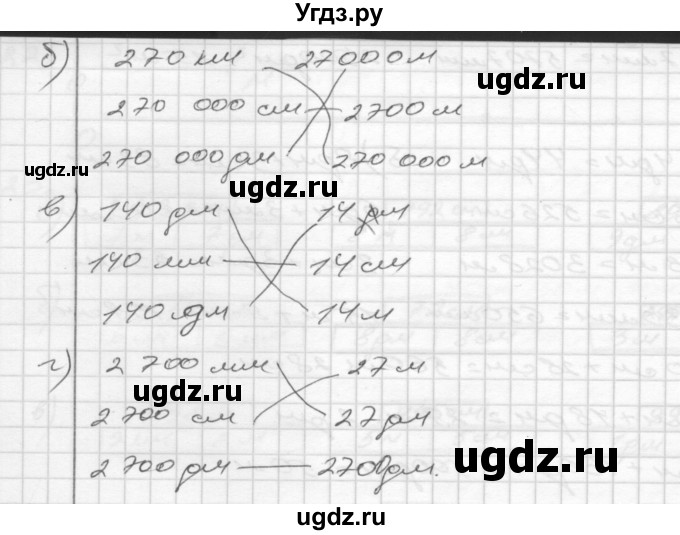 Угдз.ру
б) 270 км 27000 м
270 000 см 2700 м
270 000 дм 270 000 м
ugdz.ru ugdz.ru ugdz.ru
в) 140 дм 14 дм
140 мм 14 см
140 дм 14 м
ugdz.ru
г) 2 700 мм 27 м
ugdz.ru
2 700 см 27 дм
2 700 дм 2700 дм.
ugdz.ru
ugdz.ru
ugdz.ru